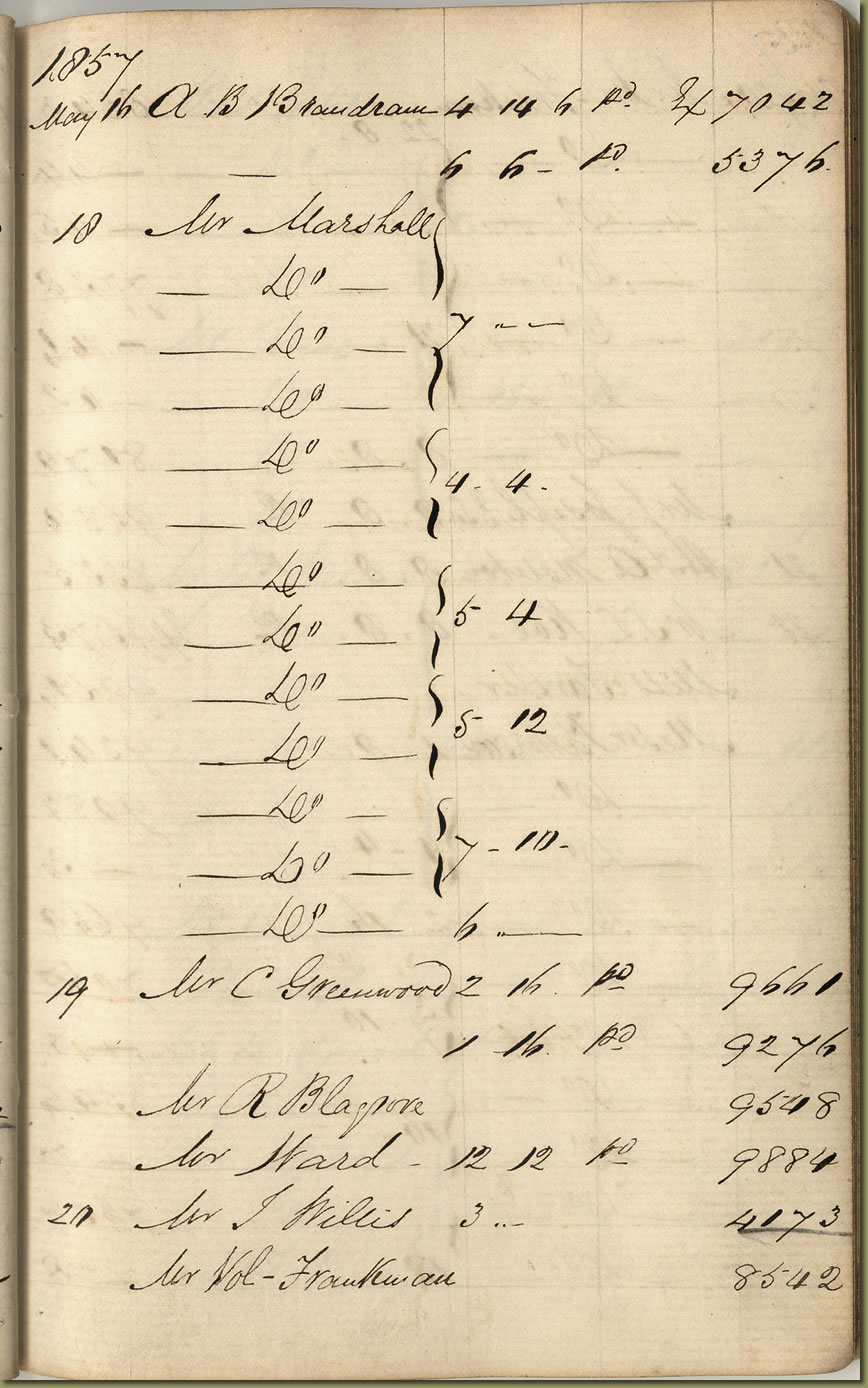 1857
May 16 A B Brandram 4 14 6 pd. 7042
— 6 6 – pd. 5376.
18 Mr Marshall
— Do —
— Do — 7 " —
— Do —
— Do —
— Do — 4. 4.
— Do —
— Do — 5 4
— Do —
— Do — 5 12
— Do —
— Do — 7 – 10 –
— Do — 6 " —
19 Mr C Greenwood 2 16. pd 9661
1 16. pd 9276
Mr R Blagrove 9548
Mr Ward – 12 12 pd 9884
20 Mr J Willis 3 " – 4073
Mr Vol-Frankman 8542